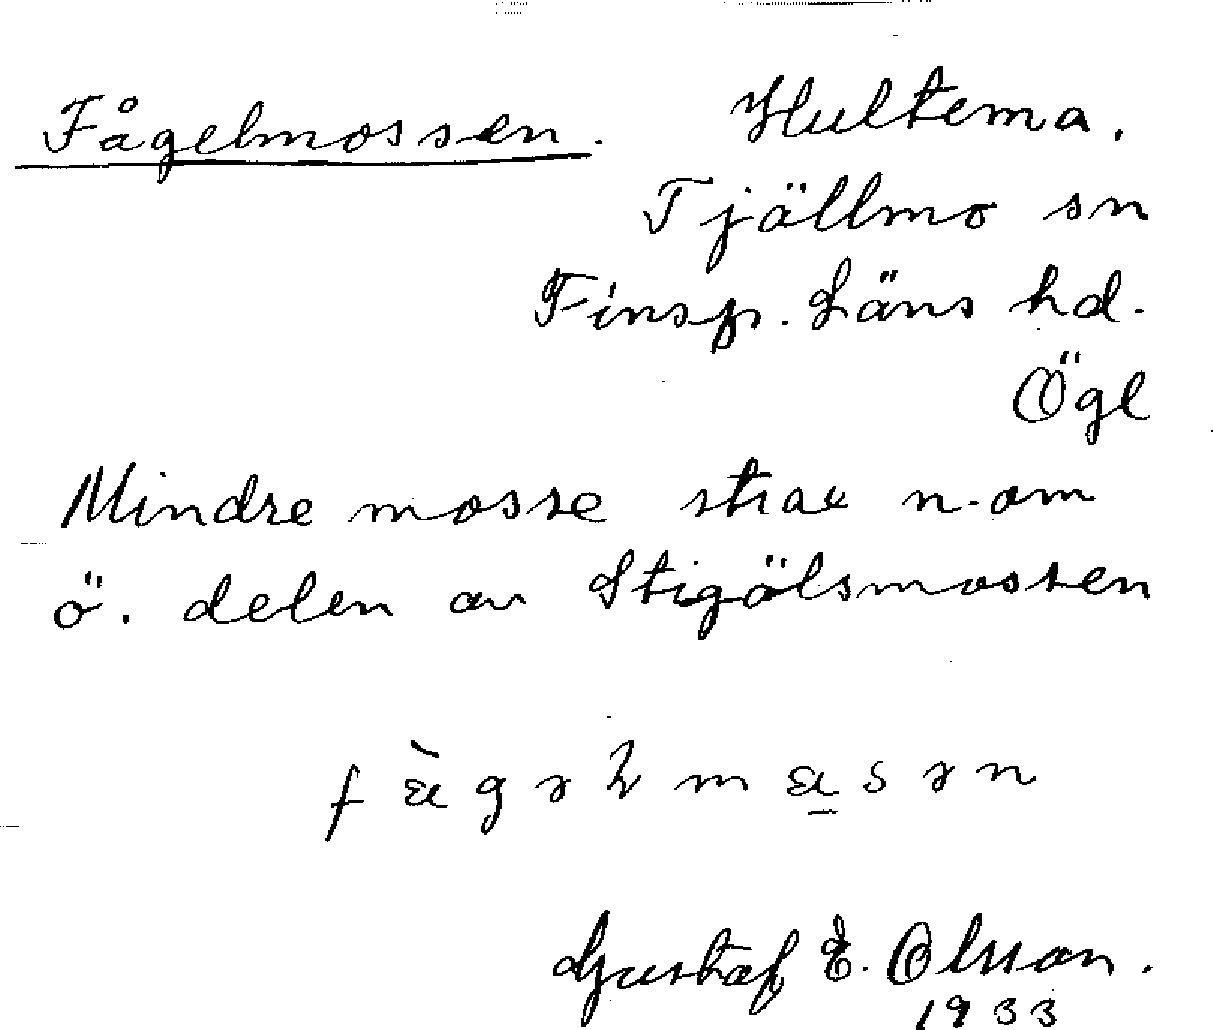 Fågelmossen. Hultema.
Tjällmo sn
Finsp. Läns hd.
Ögl
Mindre mosse strax n. om
ö. delen av Stigölsmossen
Gustaf E. Olsson.
1933